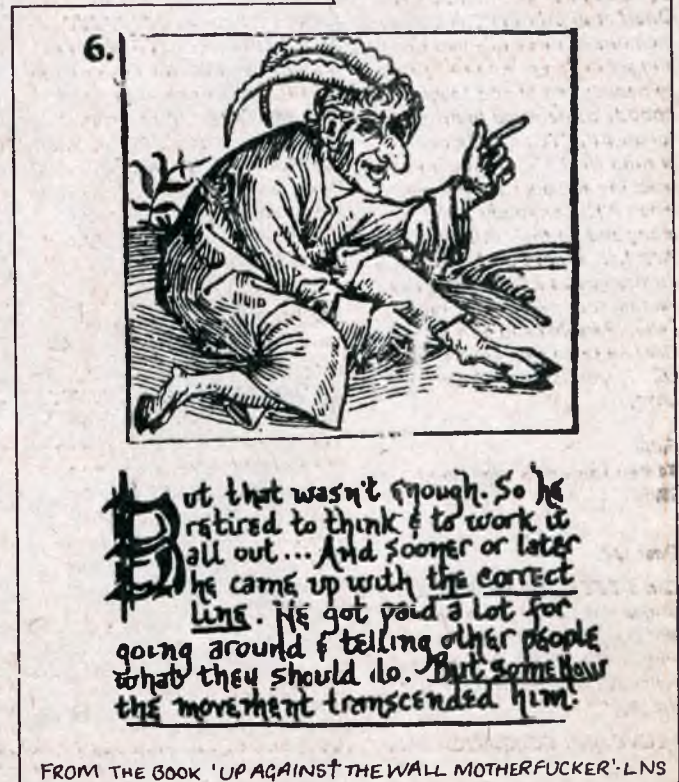 6.
But that wasn't enough. So he
retired to think & to work it
all out... And sooner or later
he came up with the correct
line. He got paid a lot for
going around & telling other people
what they should do. But somehow
the movement transcended him.
FROM THE BOOK 'UP AGAINST THE WALL MOTHERFUCKER'-LNS